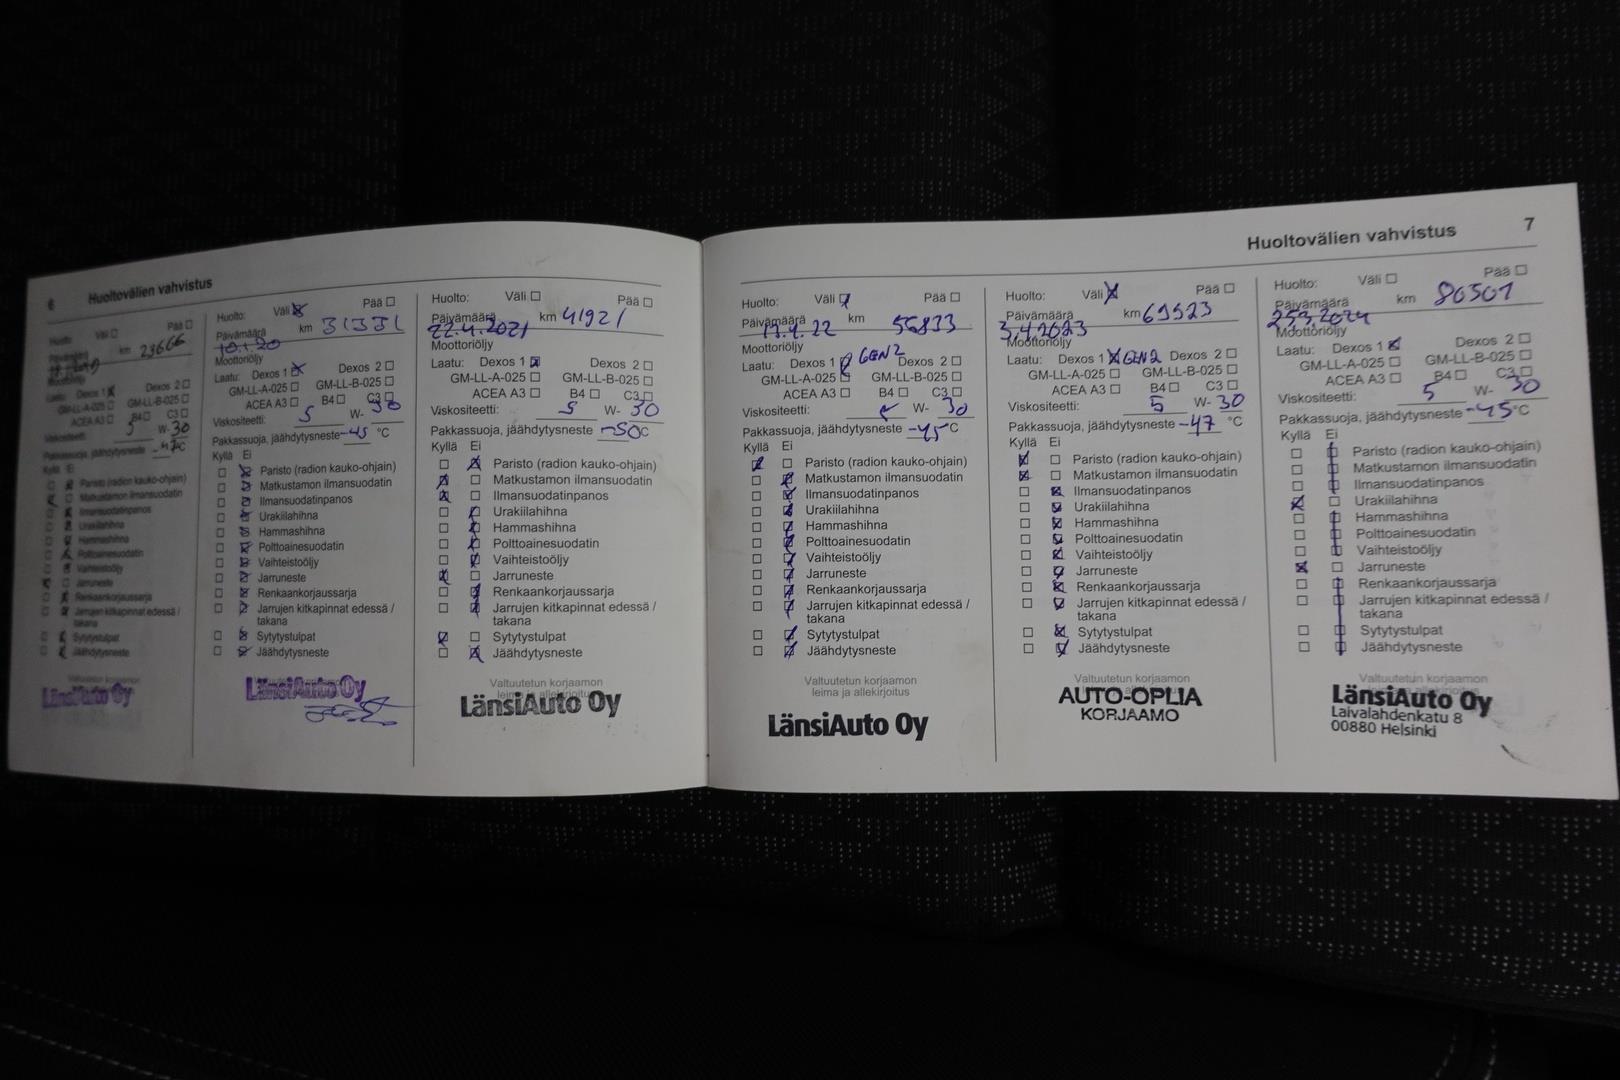 6
Huoltovälien vahvistus
Huolto: Väli Pää
Päivämäärä km 23666
Moottoriöljy
Laatu: Dexos 1 Dexos 2
GM-LL-A-025 GM-LL-B-025
ACEA A3 B4 C3
Viskositeetti: 5 W- 30
Pakkassuoja, jäähdytysneste °C
Kyllä Ei
Paristo (radion kauko-ohjain)
Matkustamon ilmansuodatin
Ilmansuodatinpanos
Urakiilahihna
Hammashihna
Polttoainesuodatin
Vaihteistoöljy
Jarruneste
Renkaankorjaussarja
Jarrujen kitkapinnat edessä /
takana
Sytytystulpat
Jäähdytysneste
LänsiAuto Oy
Huolto: Väli Pää
Päivämäärä km 31331
10.1.20
Moottoriöljy
Laatu: Dexos 1 Dexos 2
GM-LL-A-025 GM-LL-B-025
ACEA A3 B4 C3
Viskositeetti: 5 W- 30
Pakkassuoja, jäähdytysneste -45 °C
Kyllä Ei
Paristo (radion kauko-ohjain)
Matkustamon ilmansuodatin
Ilmansuodatinpanos
Urakiilahihna
Hammashihna
Polttoainesuodatin
Vaihteistoöljy
Jarruneste
Renkaankorjaussarja
Jarrujen kitkapinnat edessä /
takana
Sytytystulpat
Jäähdytysneste
LänsiAuto Oy
Huolto: Väli Pää
Päivämäärä km 41921
22.4.2021
Moottoriöljy
Laatu: Dexos 1 Dexos 2
GM-LL-A-025 GM-LL-B-025
ACEA A3 B4 C3
Viskositeetti: 5 W- 30
Pakkassuoja, jäähdytysneste -50 °C
Kyllä Ei
Paristo (radion kauko-ohjain)
Matkustamon ilmansuodatin
Ilmansuodatinpanos
Urakiilahihna
Hammashihna
Polttoainesuodatin
Vaihteistoöljy
Jarruneste
Renkaankorjaussarja
Jarrujen kitkapinnat edessä /
takana
Sytytystulpat
Jäähdytysneste
Valtuutetun korjaamon
leima ja allekirjoitus
LänsiAuto Oy
Huoltovälien vahvistus
7
Huolto: Väli Pää
Päivämäärä km 56833
Moottoriöljy
Laatu: Dexos 1 GEN2 Dexos 2
GM-LL-A-025 GM-LL-B-025
ACEA A3 B4 C3
Viskositeetti: W- 30
Pakkassuoja, jäähdytysneste -45 °C
Kyllä Ei
Paristo (radion kauko-ohjain)
Matkustamon ilmansuodatin
Ilmansuodatinpanos
Urakiilahihna
Hammashihna
Polttoainesuodatin
Vaihteistoöljy
Jarruneste
Renkaankorjaussarja
Jarrujen kitkapinnat edessä /
takana
Sytytystulpat
Jäähdytysneste
Valtuutetun korjaamon
leima ja allekirjoitus
LänsiAuto Oy
Huolto: Väli Pää
Päivämäärä km 69523
3.4.2023
Moottoriöljy
Laatu: Dexos 1 GEN2 Dexos 2
GM-LL-A-025 GM-LL-B-025
ACEA A3 B4 C3
Viskositeetti: 5 W- 30
Pakkassuoja, jäähdytysneste -47 °C
Kyllä Ei
Paristo (radion kauko-ohjain)
Matkustamon ilmansuodatin
Ilmansuodatinpanos
Urakiilahihna
Hammashihna
Polttoainesuodatin
Vaihteistoöljy
Jarruneste
Renkaankorjaussarja
Jarrujen kitkapinnat edessä /
takana
Sytytystulpat
Jäähdytysneste
Valtuutetun korjaamon
AUTO-OPLIA
KORJAAMO
Huolto: Väli Pää
Päivämäärä km 80501
25.3.2024
Moottoriöljy
Laatu: Dexos 1 Dexos 2
GM-LL-A-025 GM-LL-B-025
ACEA A3 B4 C3
Viskositeetti: 5 W- 30
Pakkassuoja, jäähdytysneste -45 °C
Kyllä Ei
Paristo (radion kauko-ohjain)
Matkustamon ilmansuodatin
Ilmansuodatinpanos
Urakiilahihna
Hammashihna
Polttoainesuodatin
Vaihteistoöljy
Jarruneste
Renkaankorjaussarja
Jarrujen kitkapinnat edessä /
takana
Sytytystulpat
Jäähdytysneste
Valtuutetun korjaamon
LänsiAuto Oy
Laivalahdenkatu 8
00880 Helsinki